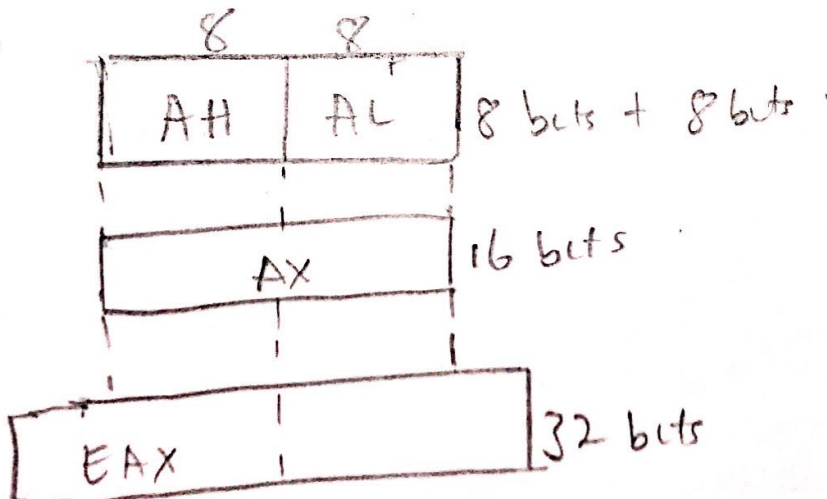 8 8
AH AL 8 bits + 8 bits
AX 16 bits
EAX 32 bits